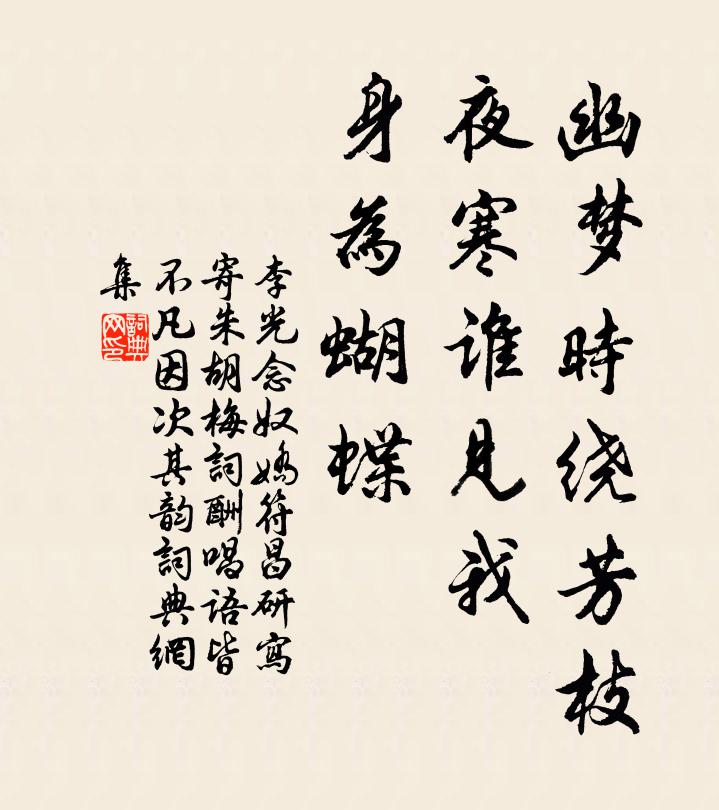 幽梦時绕芳枝
夜寒谁見我
身為蝴蝶
李光念奴嬌符昌研寫
寄朱胡梅詞酬唱语皆
不凡因次其韵詞典網
集
詞典
网印